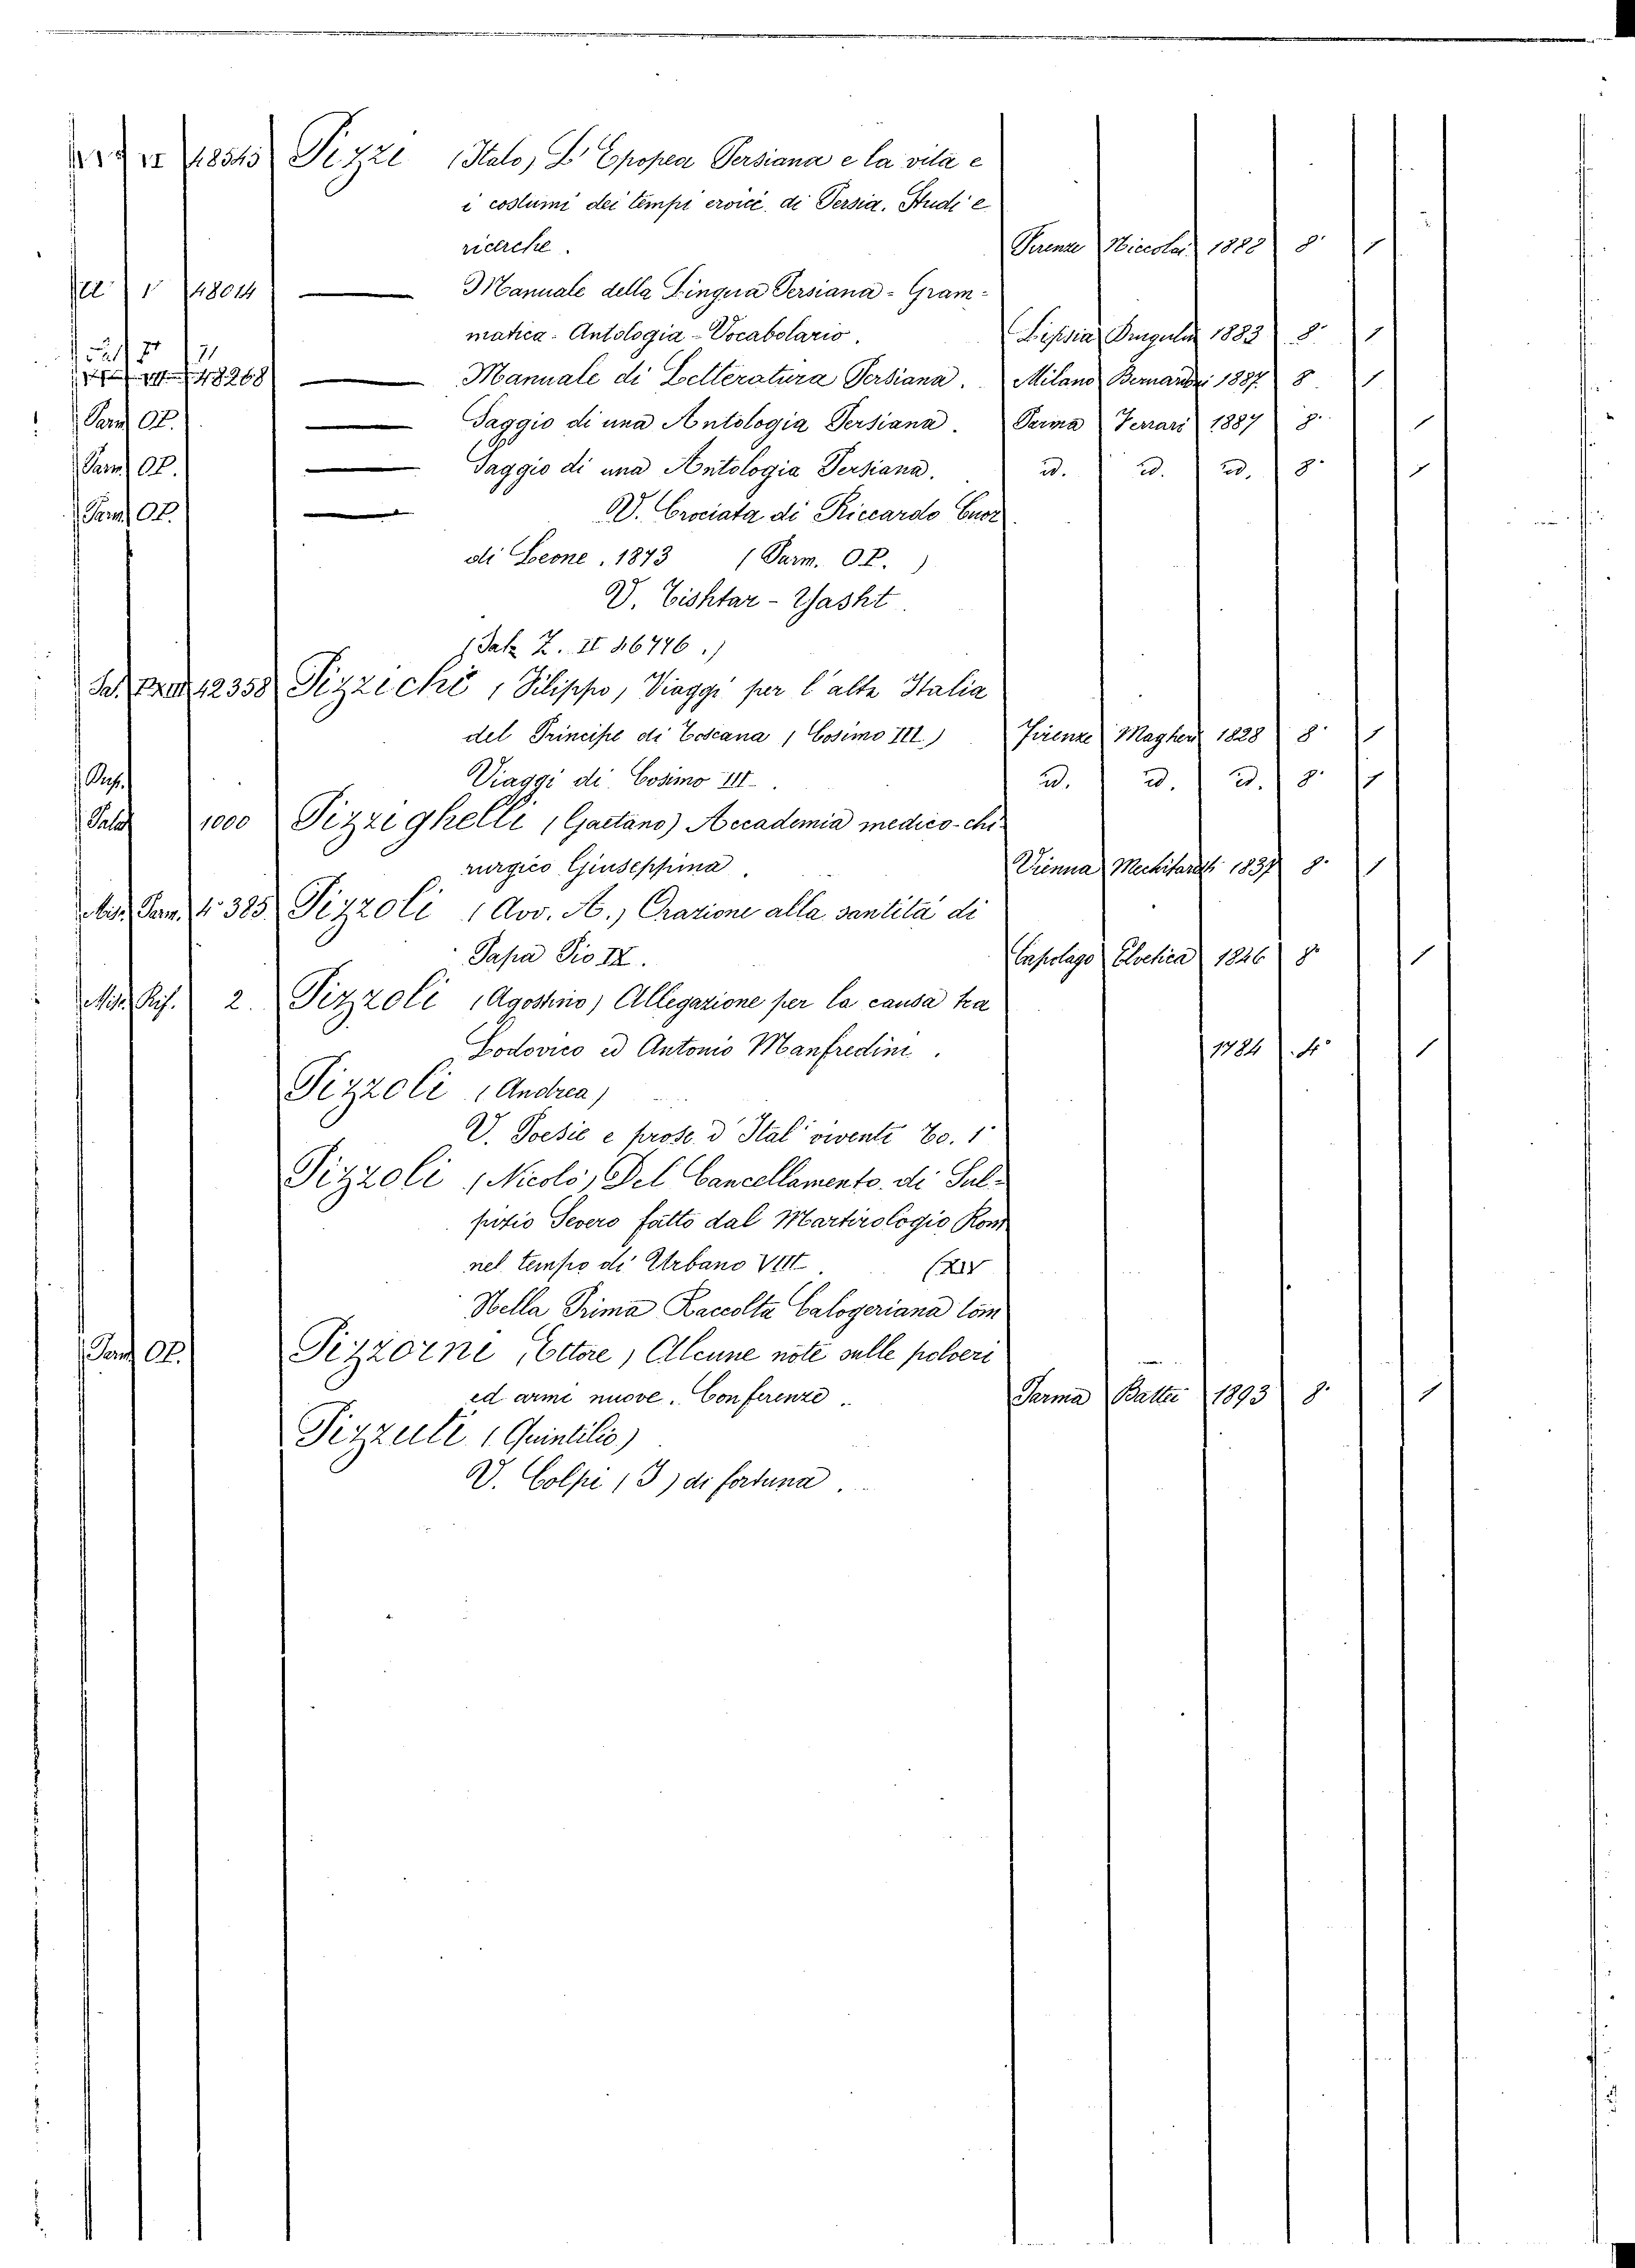 48545 Pizzi (Italo) L'Epopea Persiana e la vita e
i costumi dei tempi eroici di Persia. Studi e
ricerche. Firenze Niccolai 1888 8° 1
V 48014 — Manuale della Lingua Persiana - Gram-
matica - Antologia - Vocabolario. Lipsia Drugulin 1883 8° 1
48268 — Manuale di Letteratura Persiana. Milano Bernardoni 1887 8 1
Parm OP. — Saggio di una Antologia Persiana. Parma Ferrari 1887 8° 1
Parm OP. — Saggio di una Antologia Persiana. id. id. id. 8° 1
Parm OP. — V. Crociata di Riccardo Cuor
di Leone. 1873 (Parm. OP.)
V. Tishtar - Yasht.
Z. II 26776.)
Sal. 12358 Pizzichi (Filippo) Viaggi per l'alta Italia
del Principe di Toscana (Cosimo III.) Firenze Magheri 1828 8° 1
Viaggi di Cosimo III. id. id. id. 8° 1
Palat 1000 Pizzighelli (Gaetano) Accademia medico-chi-
rurgico Giuseppina. Vienna Mechitaristi 1837 8° 1
Mis. Parm. 4° 385 Pizzoli (Avv. A.) Orazione alla santità di
Papa Pio IX. Capolago Elvetica 1846 8° 1
Mis. 2. Pizzoli (Agostino) Allegazione per la causa tra
Lodovico ed Antonio Manfredini. 1784 4° 1
Pizzoli (Andrea)
V. Poesie e prose d'Ital' viventi To. 1°
Pizzoli (Nicolò) Del Cancellamento di Sul-
pizio Severo fatto dal Martirologio Rom
nel tempo di Urbano VIII. (XIV
Nella Prima Raccolta Calogeriana tom
Parm OP. Pizzorni (Ettore) Alcune note sulle polveri
ed armi nuove. Conferenze. Parma Battei 1893 8° 1
Pizzuti (Quintilio)
V. Colpi (I) di fortuna.